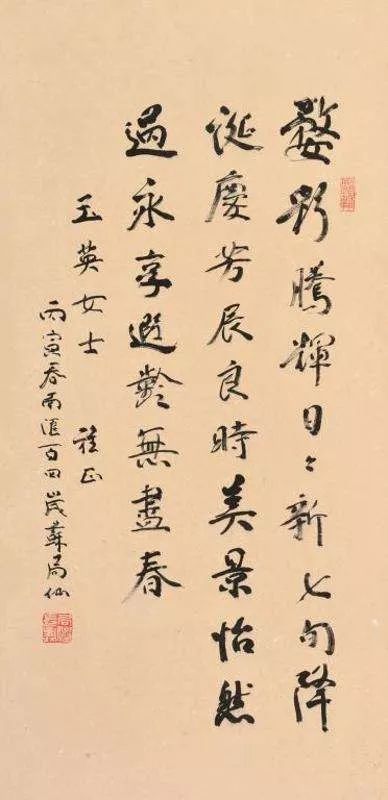 婺彩騰輝日々新七旬降
誕慶芳辰良時美景怡然
過永享遐齡無盡春
玉英女士 雅正
丙寅春南匯百四歲蘇局仙